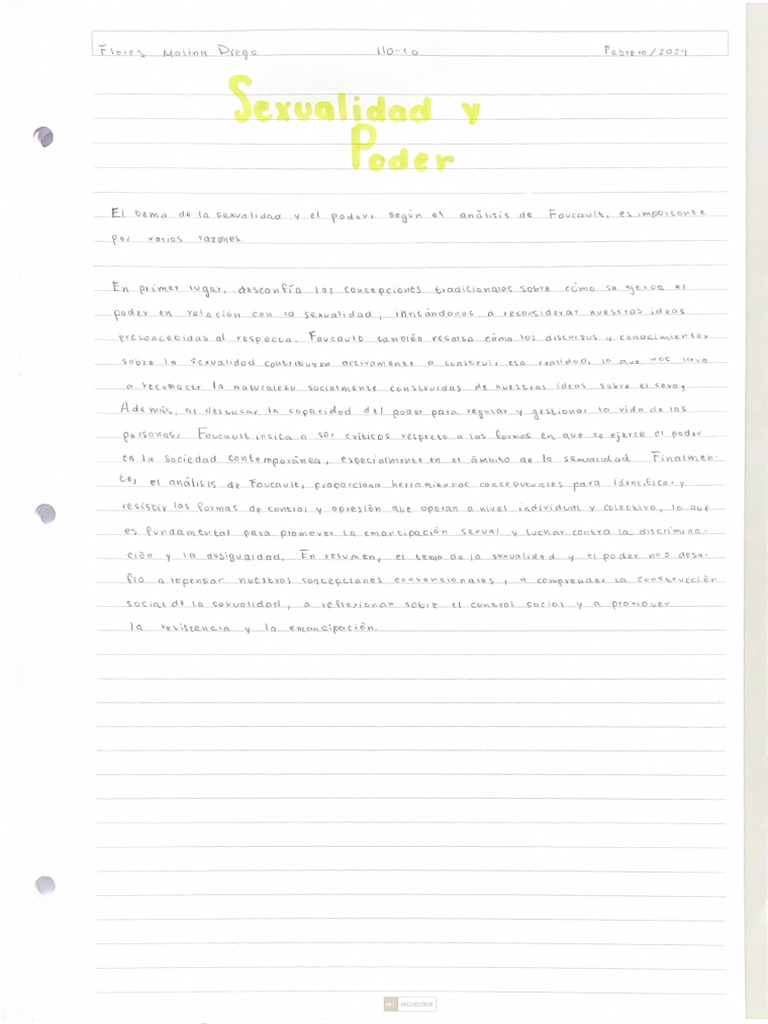 Flores Molina Diego 110-10 Febrero/2024
Sexualidad y
Poder
El tema de la sexualidad y el poder, según el análisis de Foucault, es importante
por varios razones.
En primer lugar, desconfía las concepciones tradicionales sobre cómo se yerce el
poder en relación con la sexualidad, invitándonos a reconsiderar nuestras ideas
preconcebidas al respecto. Foucault también resalsa cómo los discursos y conocimientos
sobre la sexualidad contribuyen activamente a construir esa realidad, lo que nos lleva
a reconocer la naturaleza socialmente construidas de nuestras ideas sobre el sexo,
Además, al destacar la capacidad del poder para regular y gestionar la vida de las
personas, Foucault insita a ser críticos respecto a las formas en que se ejerce el poder
en la sociedad contemporánea, especialmente en el ámbito de la sexualidad. Finalmen-
te, el análisis de Foucault, proporciona herramientas conceptuales para identificar y
resistir las formas de control y opresión que operan a nivel individual y colectivo, lo que
es fundamental para promover la emancipación sexual y luchar contra la discrimina-
ción y la desigualdad. En resumen, el tema de la sexualidad y el poder nos desa-
fío a repensar nuestros concepciones convencionales, a comprender la construcción
social de la sexualidad, a reflexionar sobre el control social y a promover
la resistencia y la emancipación.